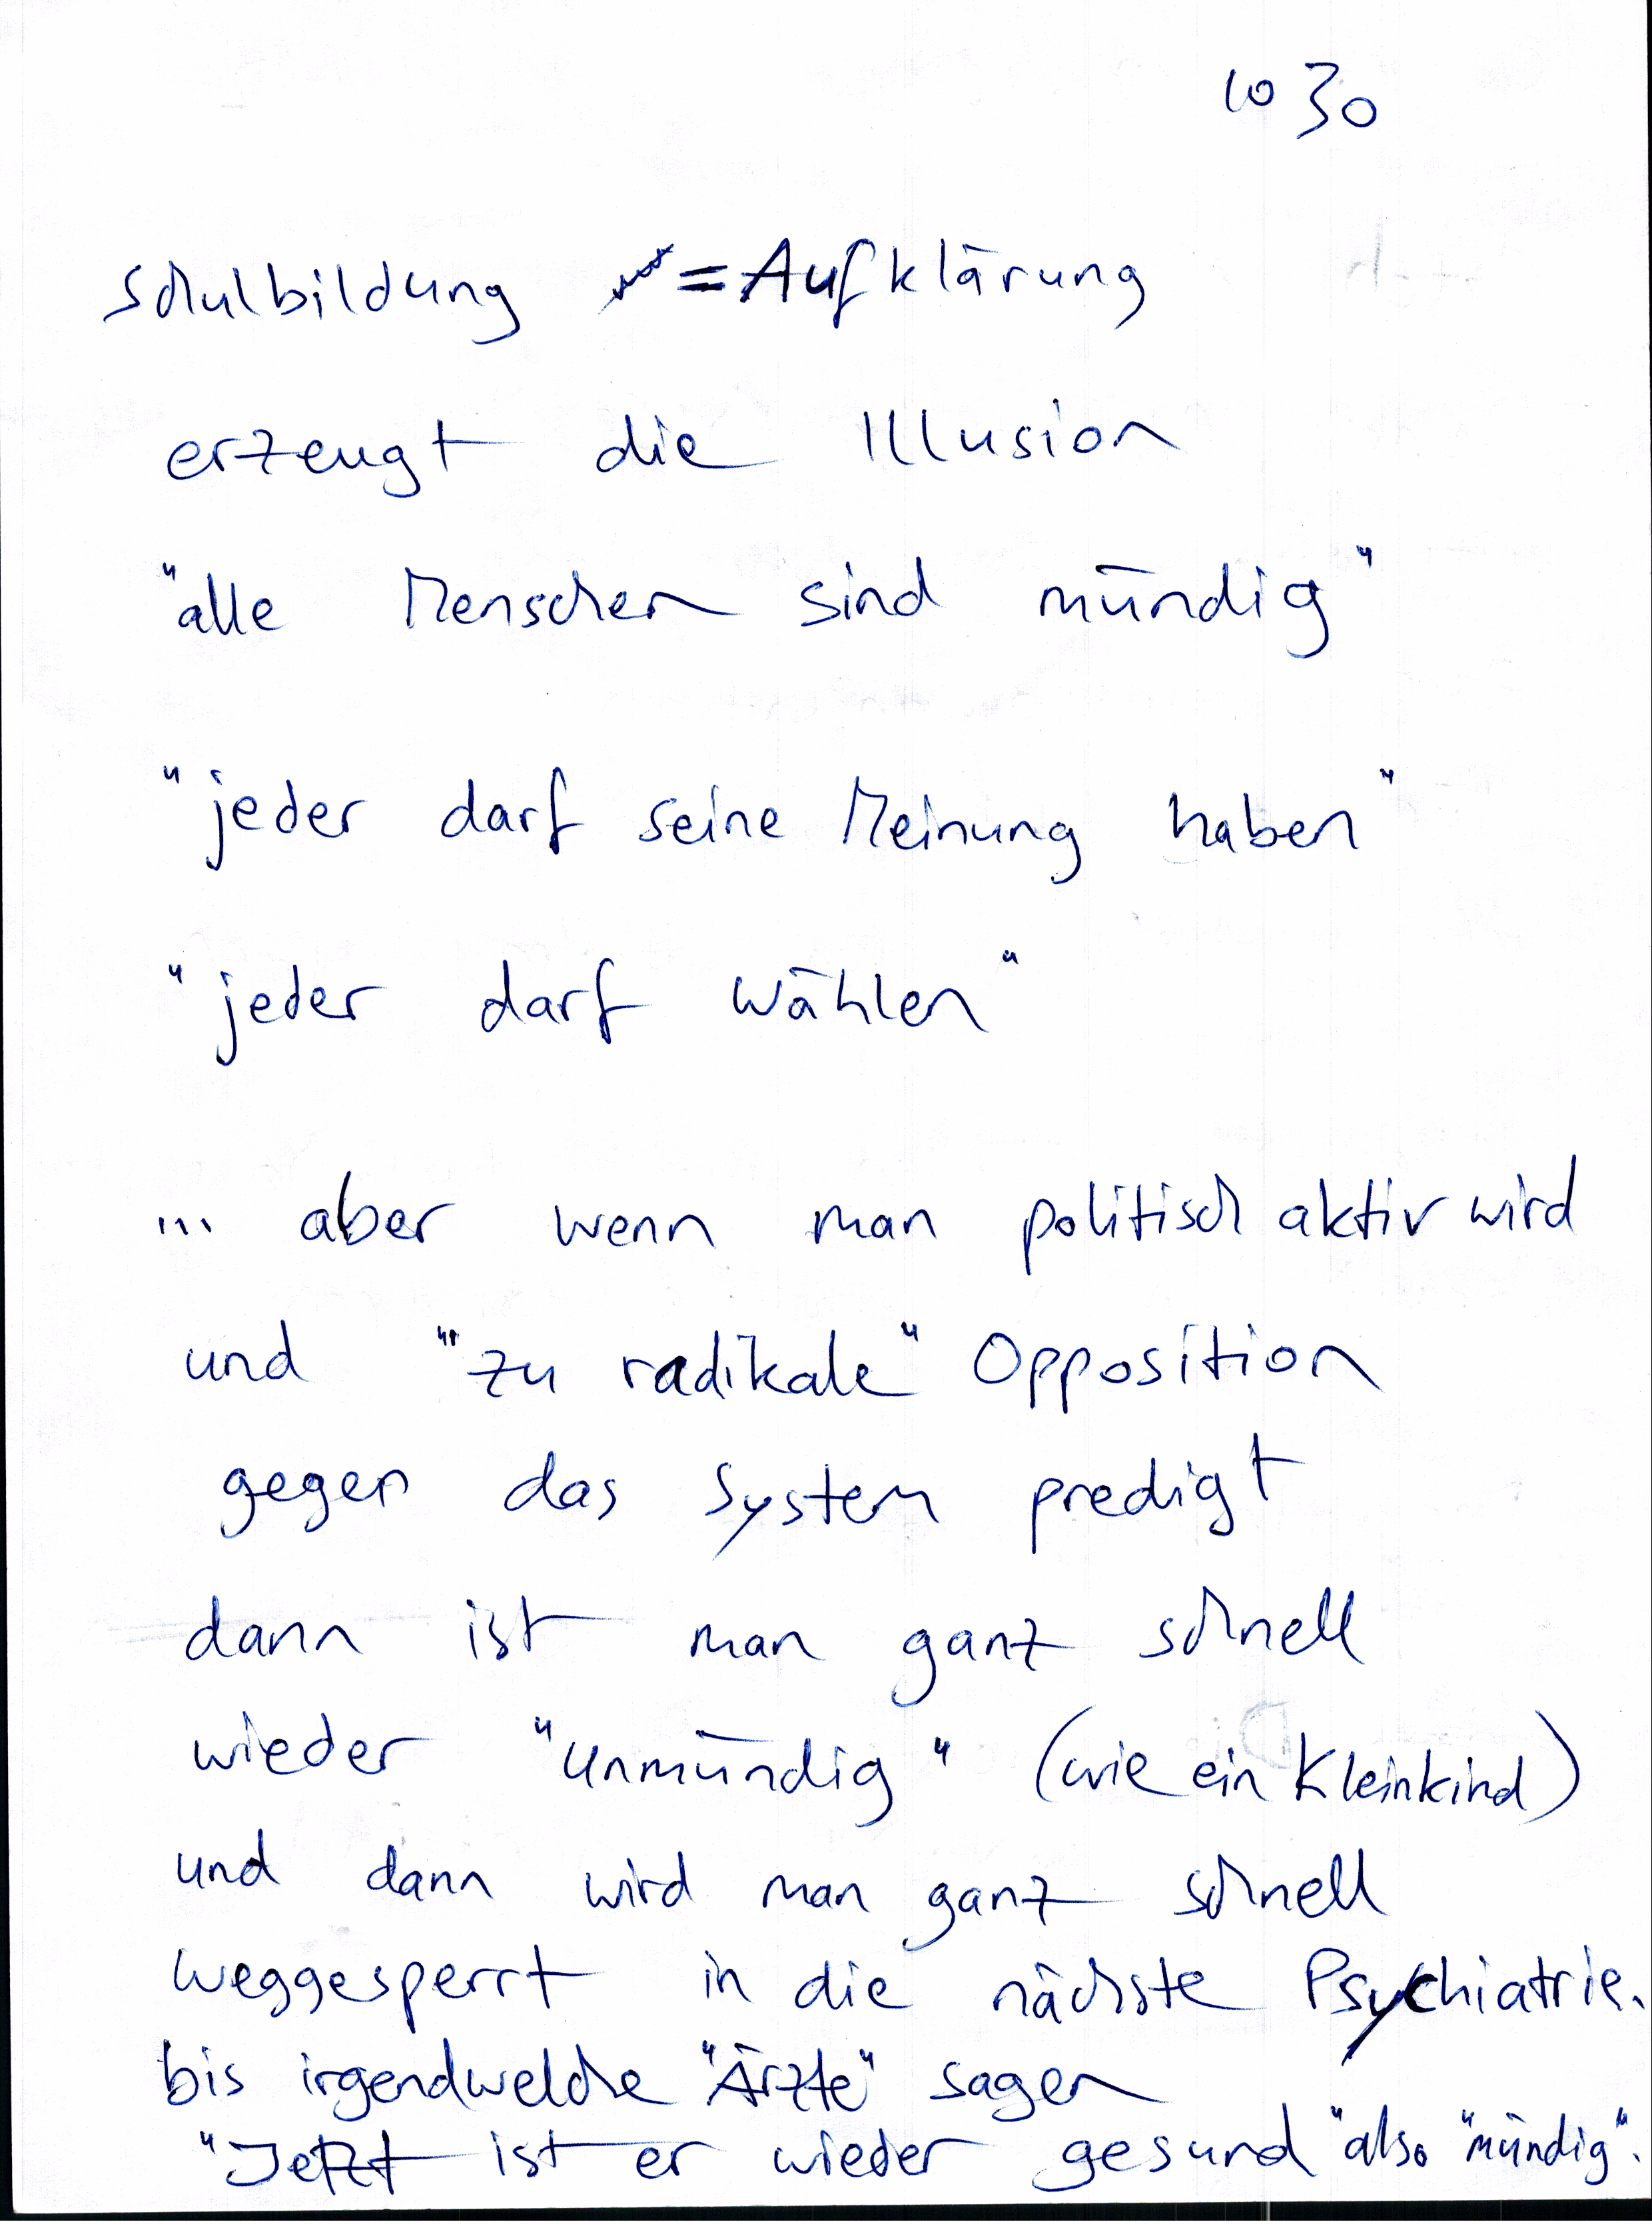 10 30
schulbildung = Aufklärung
erzeugt die Illusion
"alle Menschen sind mündig"
"jeder darf seine Meinung haben"
"jeder darf wählen"
... aber wenn man politisch aktiv wird
und "zu radikale" Opposition
gegen das System predigt
dann ist man ganz schnell
wieder "unmündig" (wie ein Kleinkind)
und dann wird man ganz schnell
weggesperrt in die nächste Psychiatrie.
bis irgendwelche "Ärzte" sagen
"Jetzt ist er wieder gesund" also "mündig".